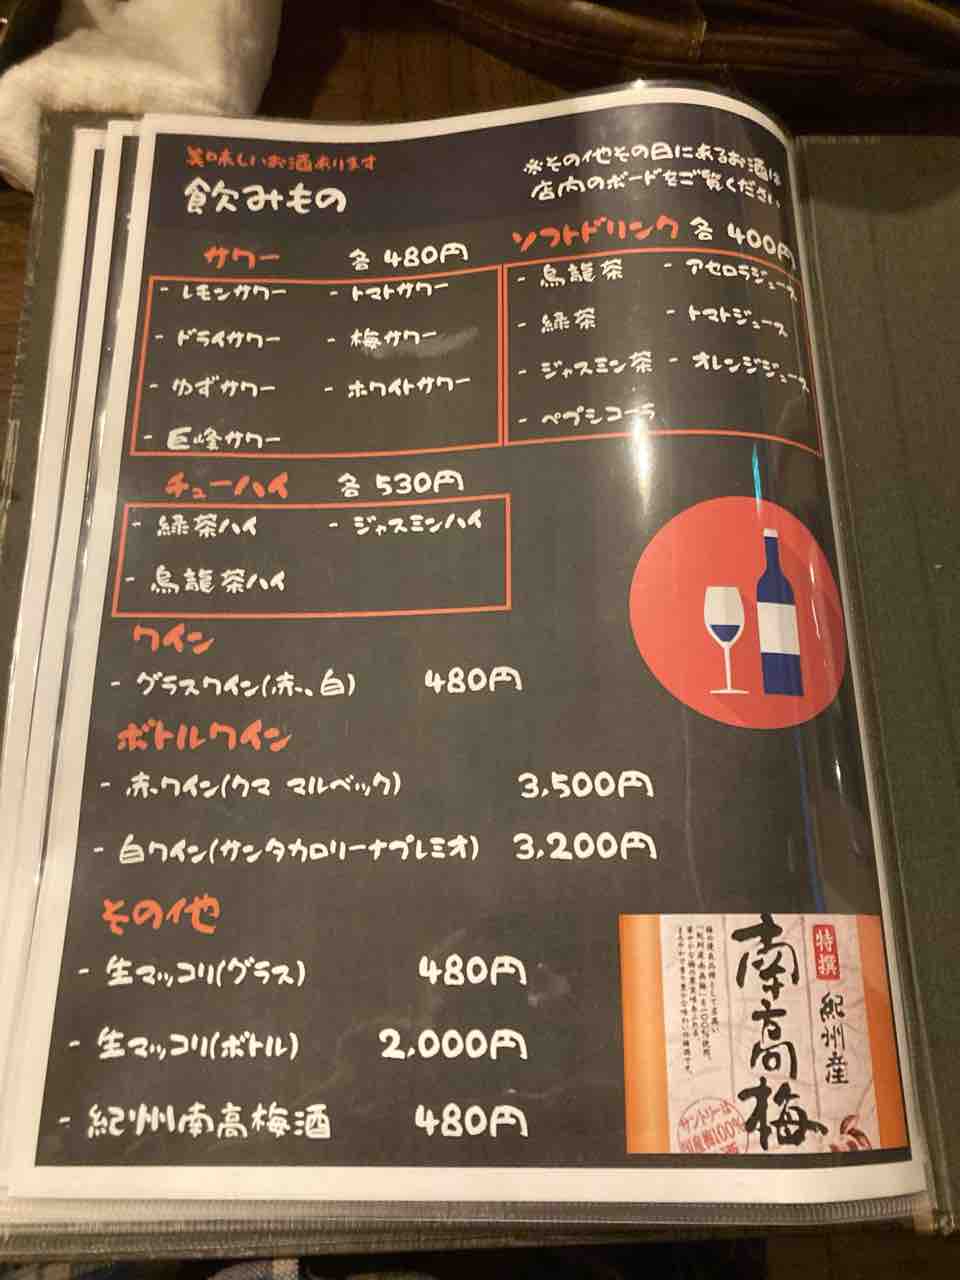 美味しいお酒あります
飲みもの
※その他その日にあるお酒は
店内のボードをご覧ください
サワー 各480円
- レモンサワー - トマトサワー
- ドライサワー - 梅サワー
- ゆずサワー - ホワイトサワー
- 巨峰サワー
ソフトドリンク 各400円
- 烏龍茶 - アセロラジュース
- 緑茶 - トマトジュース
- ジャスミン茶 - オレンジジュース
- ペプシコーラ
チューハイ 各530円
- 緑茶ハイ - ジャスミンハイ
- 烏龍茶ハイ
ワイン
- グラスワイン(赤、白) 480円
ボトルワイン
- 赤ワイン(クマ マルベック) 3,500円
- 白ワイン(サンタカロリーナプレミオ) 3,200円
その他
- 生マッコリ(グラス) 480円
- 生マッコリ(ボトル) 2,000円
- 紀州南高梅酒 480円
特撰
紀州産
南高梅
サントリーは
国産梅100%